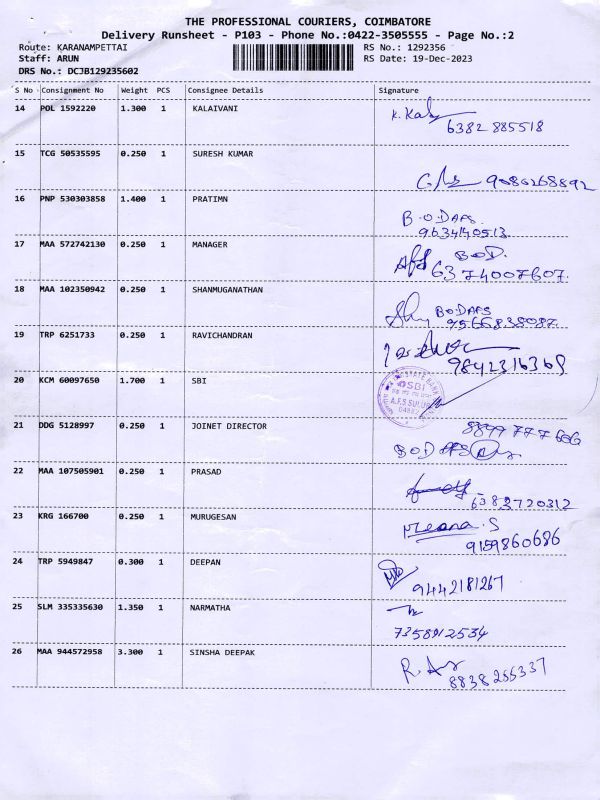 THE PROFESSIONAL COURIERS, COIMBATORE
Delivery Runsheet - P103 - Phone No.:0422-3505555 - Page No.:2
Route: KARANAMPETTAI RS No.: 1292356
Staff: ARUN RS Date: 19-Dec-2023
DRS No.: DCJB129235602
S No Consignment No Weight PCS Consignee Details Signature
14 POL 1592220 1.300 1 KALAIVANI
6382 885518
15 TCG 50535595 0.250 1 SURESH KUMAR
9080268892
16 PNP 530303858 1.400 1 PRATIMN
B.O.DAFS.
9634140513
17 MAA 572742130 0.250 1 MANAGER
B.O.D.
6374007607.
18 MAA 102350942 0.250 1 SHANMUGANATHAN
B.O.DAFS
9566838087
19 TRP 6251733 0.250 1 RAVICHANDRAN
9842316368
20 KCM 60097650 1.700 1 SBI
STATE BANK
SBI
A.F.S SULUR
21 DDG 5128997 0.250 1 JOINET DIRECTOR
8899 777 666
BOD AFS
22 MAA 107505901 0.250 1 PRASAD
6382720312
23 KRG 166700 0.250 1 MURUGESAN
Meena.S
9159860686
24 TRP 5949847 0.300 1 DEEPAN
9442181267
25 SLM 335335630 1.350 1 NARMATHA
7358912534
26 MAA 944572958 3.300 1 SINSHA DEEPAK
8838255337